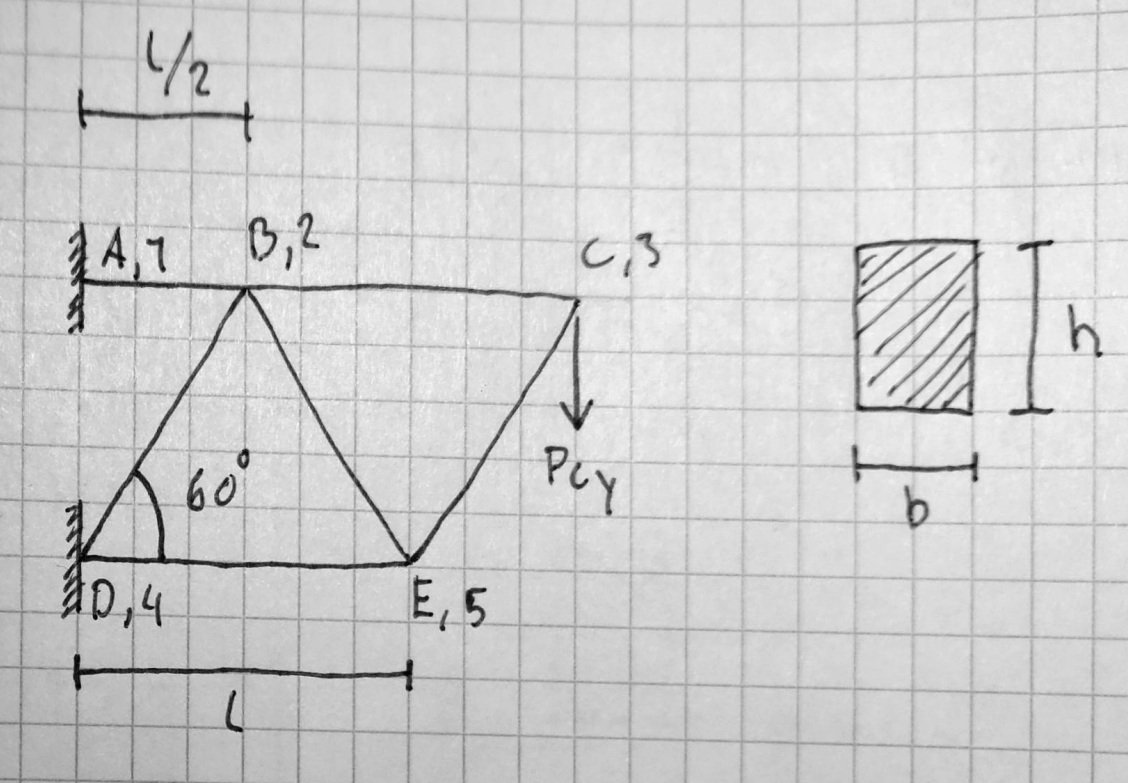 L/2
A,1
B,2
C,3
h
60°
Pcy
b
D,4
E,5
L